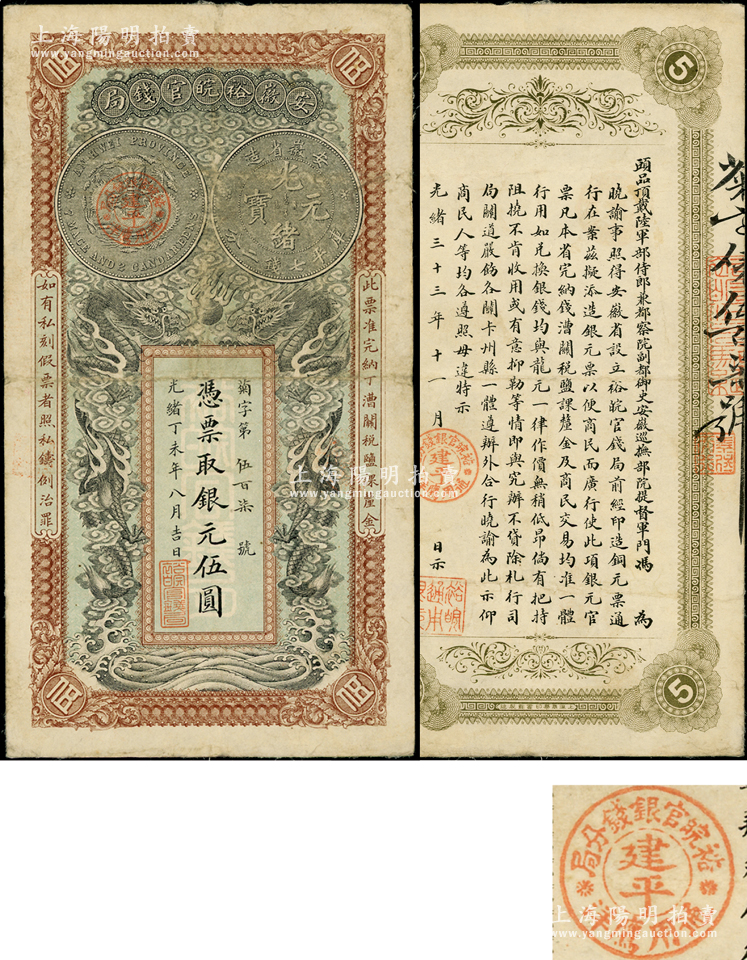 上海陽明拍賣
www.yangmingauction.com
局錢官皖裕徽安
AN-HWEI PROVINCE
7 MACE AND 2 CANDAREENS
安徽省造
光緒元寶
建平
此票准完納丁漕關稅鹽課釐金
如有私刻假票者照私鑄例治罪
菊字第 伍百柒 號
憑票取銀元伍圓
光緒丁未年八月吉日
伍
伍
伍
伍
5
頭品頂戴陸軍部侍郎兼都察院副都御史安徽巡撫部院提督軍門馮 為
曉諭事照得安徽省設立裕皖官錢局前經印造銅元票通
行在案茲擬添造銀元票以便商民而廣行使此項銀元官
票凡本省完納錢漕關稅鹽課釐金及商民交易均准一體
行用如兌換銀錢均與龍元一律作價無稍低昂倘有把持
阻撓不肯收用或有意抑勒等情即與究辦不貸除札行司
局關道嚴飭各關卡州縣一體遵辦外合行曉諭為此示仰
商民人等均各遵照毋違特示
光緒三十三年十一月 日示
裕皖官銀錢分局
建平
5
上海陽明拍賣
www.yangmingauction.com
裕皖官銀錢分局
建平
上海陽明拍賣
www.yangmingauction.com